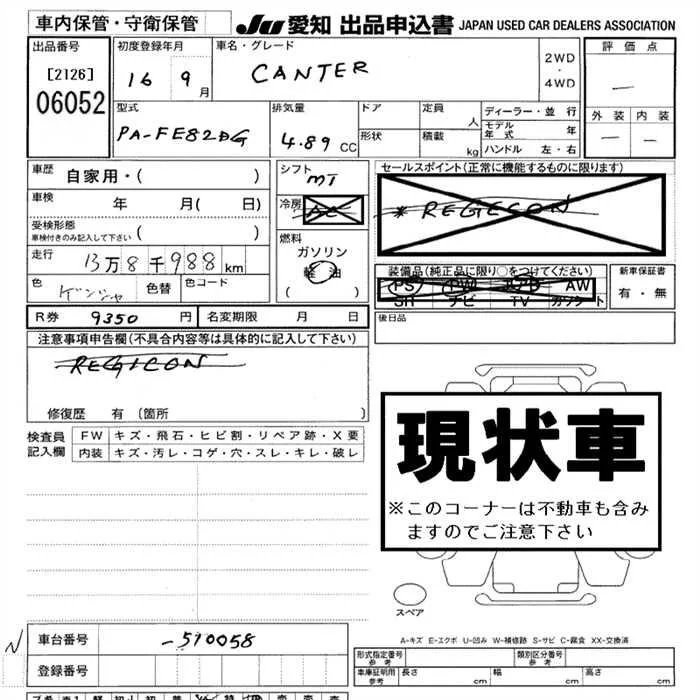 車内保管・守衛保管
JU 愛知 出品申込書 JAPAN USED CAR DEALERS ASSOCIATION
出品番号
[2126]
06052
初度登録年月
16 9月
車名・グレード
CANTER
2WD
・
4WD
評価点
—
外装 内装
— —
型式
PA-FE82DG
排気量
4.89 CC
ドア
形状
定員 人
積載 kg
ディーラー・並行
モデル年式 年
ハンドル 左・右
車歴 自家用・( )
車検 年 月( 日)
受検形態
車検付きのみ記入して下さい ( )
走行 13万8千988km
色 ゲンシャ 色替 色コード
シフト
MT
冷房
AC
燃料
ガソリン
軽油
( )
セールスポイント(正常に機能するものに限ります)
* REGICON
装備品(純正品に限り○をつけてください)
PS PW エアB AW
SR ナビ TV カワシート
新車保証書
有・無
後日品
R券 9350 円 名変期限 月 日
注意事項申告欄(不具合内容等は具体的に記入して下さい)
REGICON
修復歴 有 (箇所 )
検査員
記入欄
FW キズ・飛石・ヒビ割・リペア跡・X要
内装 キズ・汚レ・コゲ・穴・スレ・キレ・破レ
現状車
※このコーナーは不動車も含み
ますのでご注意下さい
スペア
A-キズ E-エクボ U-凹み W-補修跡 S-サビ C-腐食 XX-交換済
N
車台番号 -510058
登録番号
形式指定番号
参考
類別区分番号
参考
車庫証明用
参考
長さ cm 幅 cm 高さ cm